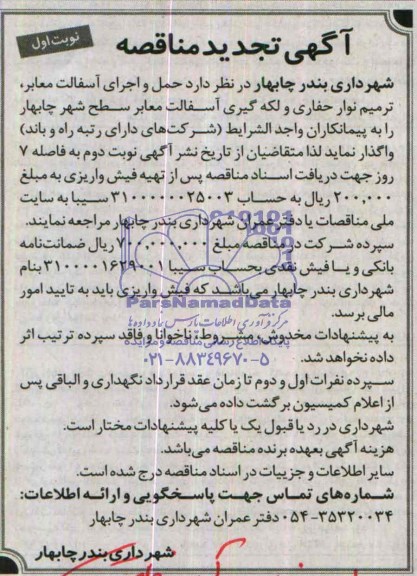 نوبت اول
آگهی تجدید مناقصه
شهرداری بندر چابهار در نظر دارد حمل و اجرای آسفالت معابر،
ترمیم نوار حفاری و لکه گیری آسفالت معابر سطح شهر چابهار
را به پیمانکاران واجد الشرایط (شرکت‌های دارای رتبه راه و باند)
واگذار نماید لذا متقاضیان از تاریخ نشر آگهی نوبت دوم به فاصله ۷
روز جهت دریافت اسناد مناقصه پس از تهیه فیش واریزی به مبلغ
۲۰۰,۰۰۰ ریال به حساب ۳۱۰۰۰۰۰۰۲۵۰۰۳ سیبا به سایت
ملی مناقصات یا دفتر عمران شهرداری بندر چابهار مراجعه نمایند.
سپرده شرکت در مناقصه مبلغ ۷۰۰,۰۰۰,۰۰۰ ریال ضمانت‌نامه
بانکی و یا فیش نقدی بحساب سیبا بنام
شهرداری بندر چابهار می‌باشد که فیش واریزی باید به تایید امور
مالی برسد.
ParsNamadData
مرکز فرآوری اطلاعات پارس نماد داده‌ها
به پیشنهادات مخدوش، مشروط، ناخوانا و فاقد سپرده ترتیب اثر
داده نخواهد شد.
پایگاه اطلاع رسانی مناقصه و مزایده
۰۲۱-۸۸۳۴۹۶۷۰-۵
سپرده نفرات اول و دوم تا زمان عقد قرارداد نگهداری و الباقی پس
از اعلام کمیسیون برگشت داده می‌شود.
شهرداری در رد یا قبول یک یا کلیه پیشنهادات مختار است.
هزینه آگهی بعهده برنده مناقصه می‌باشد.
سایر اطلاعات و جزییات در اسناد مناقصه درج شده است.
شماره‌های تماس جهت پاسخگویی و ارائه اطلاعات:
۰۵۴-۳۵۳۲۰۰۳۴ دفتر عمران شهرداری بندر چابهار
شهرداری بندر چابهار